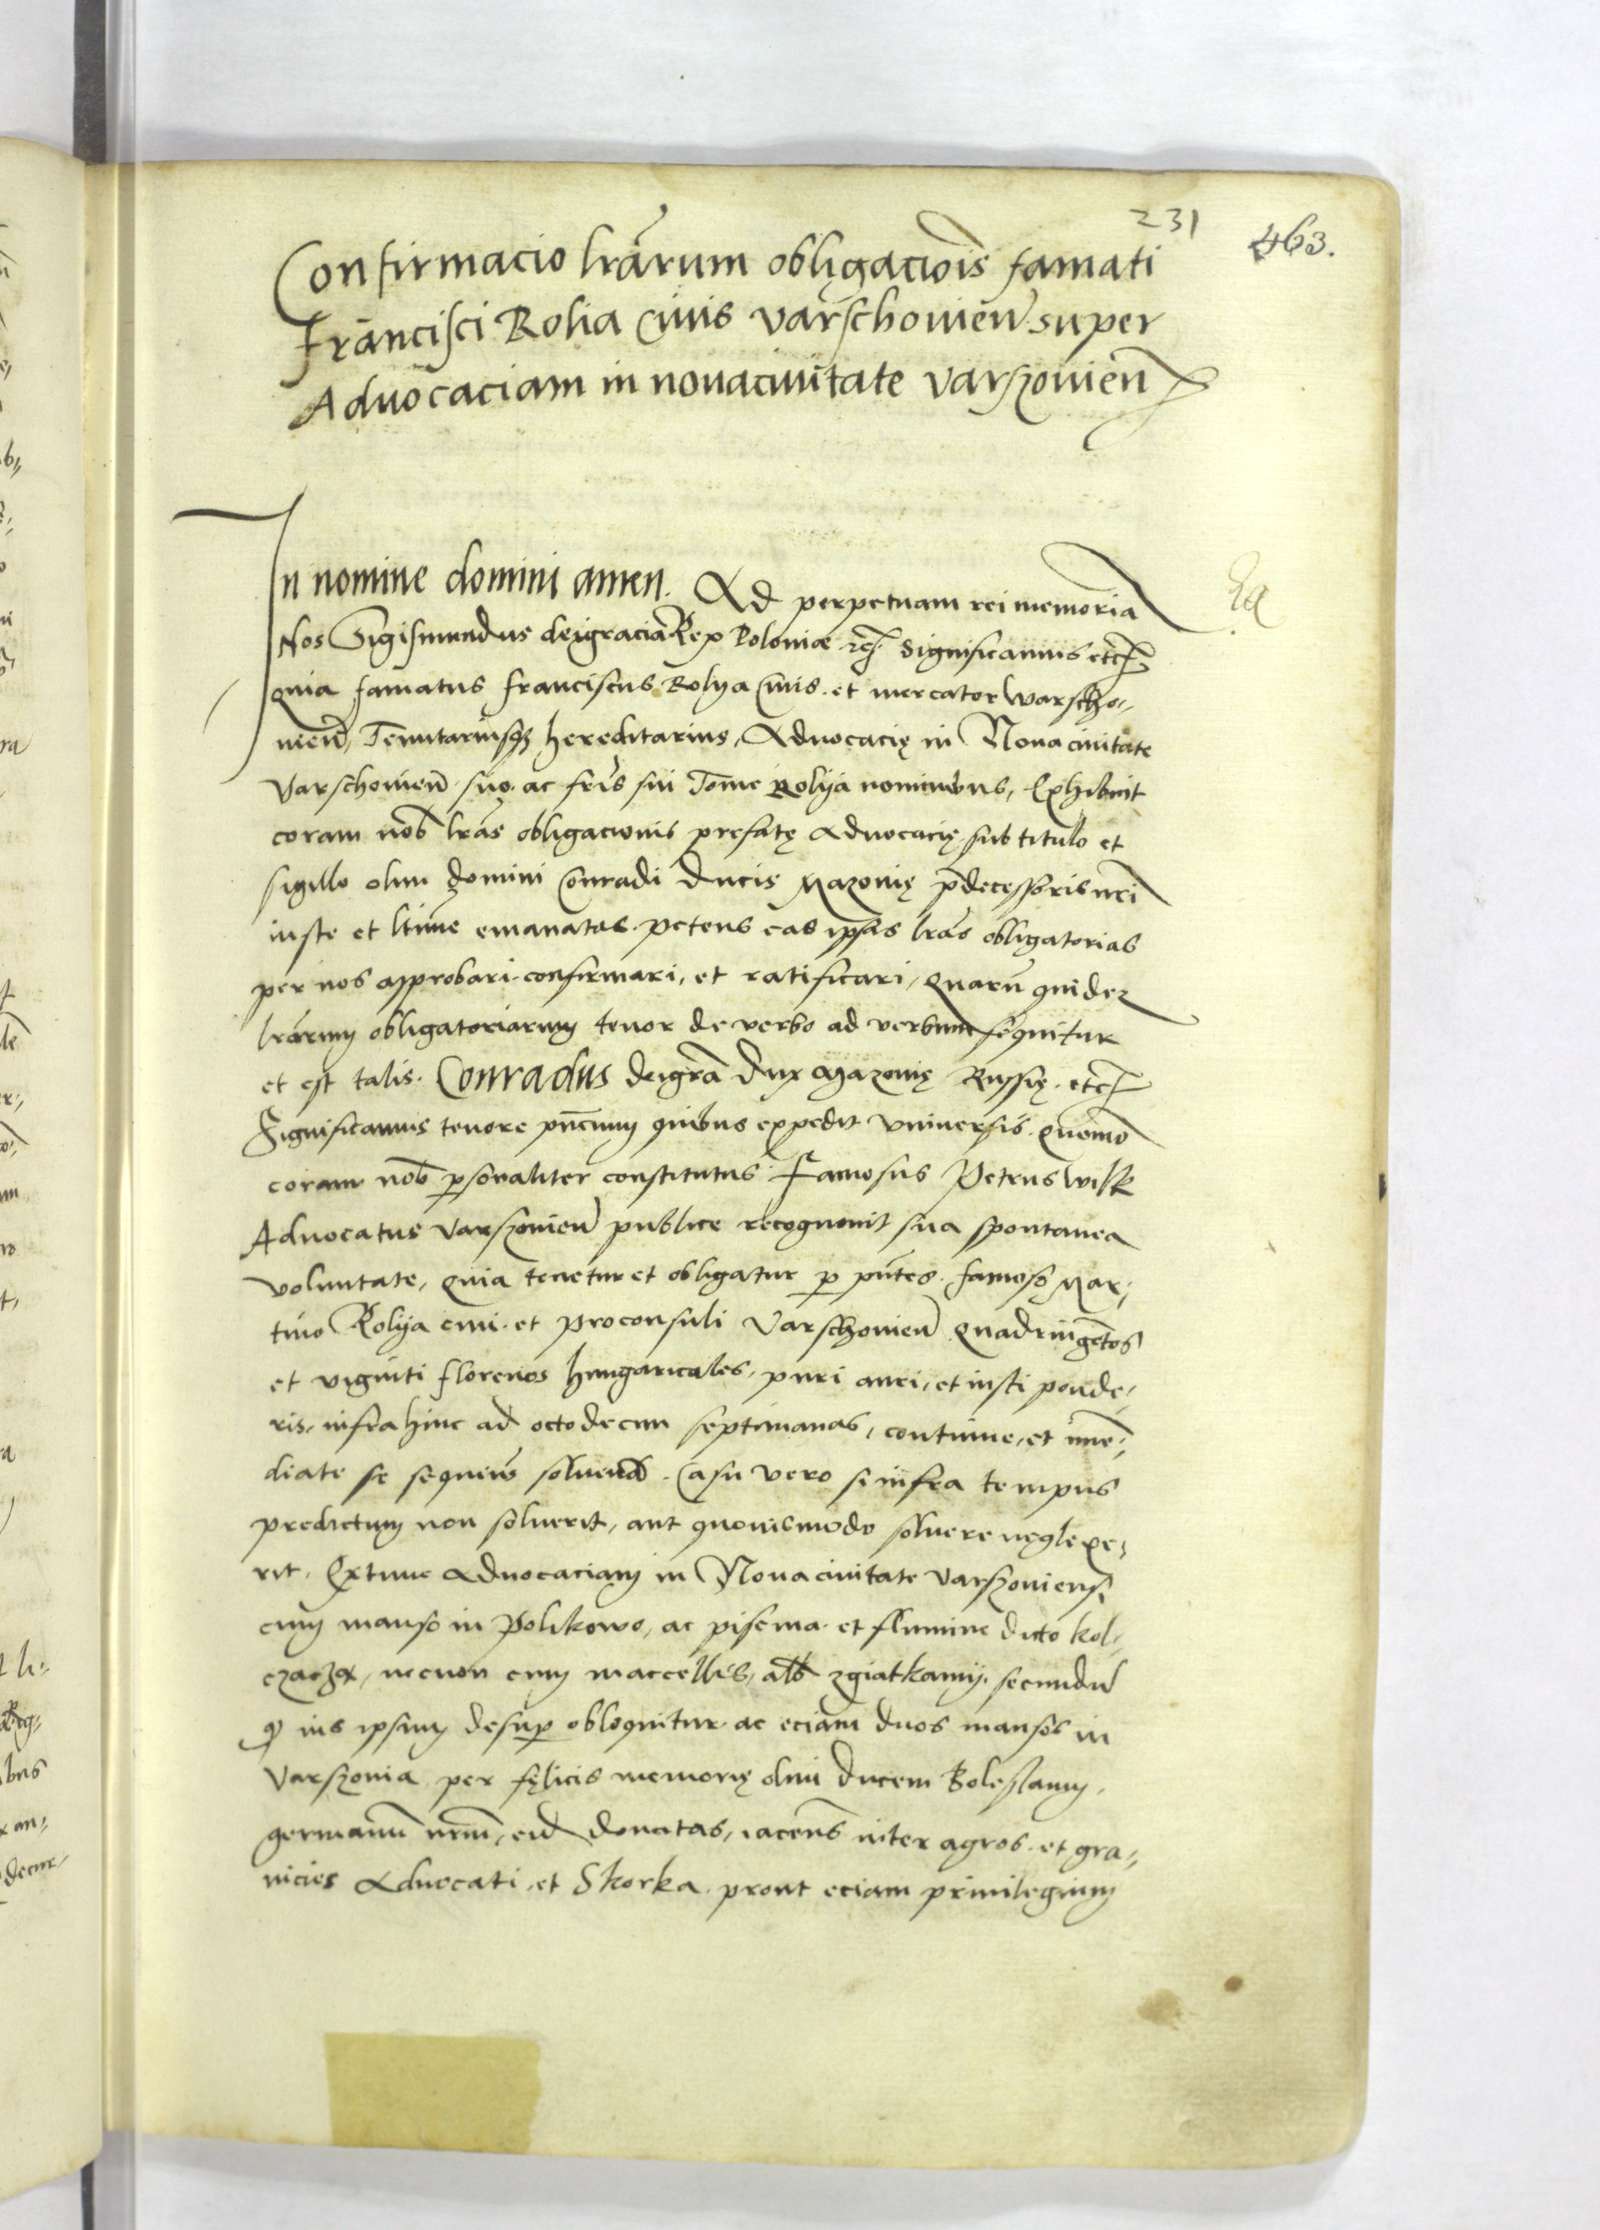 231
463.
Confirmacio lrarum obligacois famati
Francisci Rolia Civis varschovien super
Advocaciam in nova civitate varszovien
In nomine domini amen. Ad perpetuam rei memoria
Nos Sigismundus dei gracia Rex Poloniae etc. Significamus etc
quia famatus franciscus Rolya civis et mercator warscho,,
vien, Tenutariusq hereditarius, Advocacię in Nova civitate
Varschovien suo ac fris sui Tome Rolya nominibus, Exhibuit
coram nob lras obligacionis prefatę advocacię sub titulo et
sigillo olim domini Conradi Ducis Mazovię pdecessoris nri
iuste et ltime emanatas petens eas ipsas lras obligatorias
per nos approbari confirmari, et ratificari, Quaru quidez
lrarum obligatoriarum tenor de verbo ad verbum sequitur
et est talis. Conradus dei gra Dux Mazovię Russię etc
Significamus tenore pncium quibus expedit universis Quomo
coram nob psonaliter constitutus Famosus Petrus wilk
Advocatus varszovien publice recognovit sua spontanea
voluntate, Quia tenetur et obligatur p pntes famoso Mar,,
tino Rolya civi et proconsuli Varschovien Quadringetos
et viginti florenos hungaricales, puri auri, et iusti ponde,,
ris, infra hinc ad octodecim septimanas, continue, et ime,,
diate se sequen solvend. Casu vero si infra tempus
predictum non solverit, aut quovismodo solvere neglexe,,
rit. Extunc advocaciam in Nova civitate varszoviensi
cum manso in Polikowo, ac piscina et flumine dicto kol,,
necnon cum maccellis, als zgiatkamij. secundu
q ius ipsum desup obloquitur ac eciam duos mansos in
Varszovia per fęlicis memorię olim ducem Boleslaum,
germanu nrum, eid donatas, iacens inter agros et gra,,
nicies advocati et Skorka prout eciam privilegium